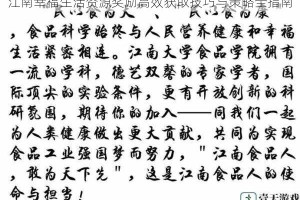 江南幸福生活资源奖励高效获取技巧与策略全指南
民以食为天，民以食为康
，食品科学始终与人民营养健康和幸
福生活紧密相连。江南大学食品学院拥有
一流的学科，德艺双馨的专家学者，国
际顶尖的实验条件，更有开放创新的科
研氛围，期待你的加入——同我们一起
为人类健康做出更大贡献，共同为实现
食品工业强国梦而努力，"江南食品人
，敢为天下先"，这是江南食品人的使
命与担当！
壹天游戏